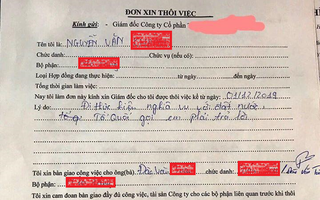 ĐƠN XIN THÔI VIỆC
Kính gửi: Giám đốc Công ty Cổ phần
Tên tôi là: NGUYỄN VĂN
Chức danh: Chức vụ (nếu có):
Bộ phận:
Loại Hợp đồng đang thực hiện: từ ngày đến ngày
Tổng thời gian làm việc:
Nay tôi làm đơn này kính xin Giám đốc cho tôi được thôi việc kể từ ngày: 01/12/2019
Lý do: Đi thực hiện nghĩa vụ với đất nước,
Tổ Quốc gọi em phải trả lời
Tôi xin bàn giao công việc cho ông(bà). Đặc Văn chức danh:
Bộ phận:
Tôi xin cam đoan bàn giao đầy đủ công việc, tài sản Công ty cho các bộ phận liên quan trước khi thôi